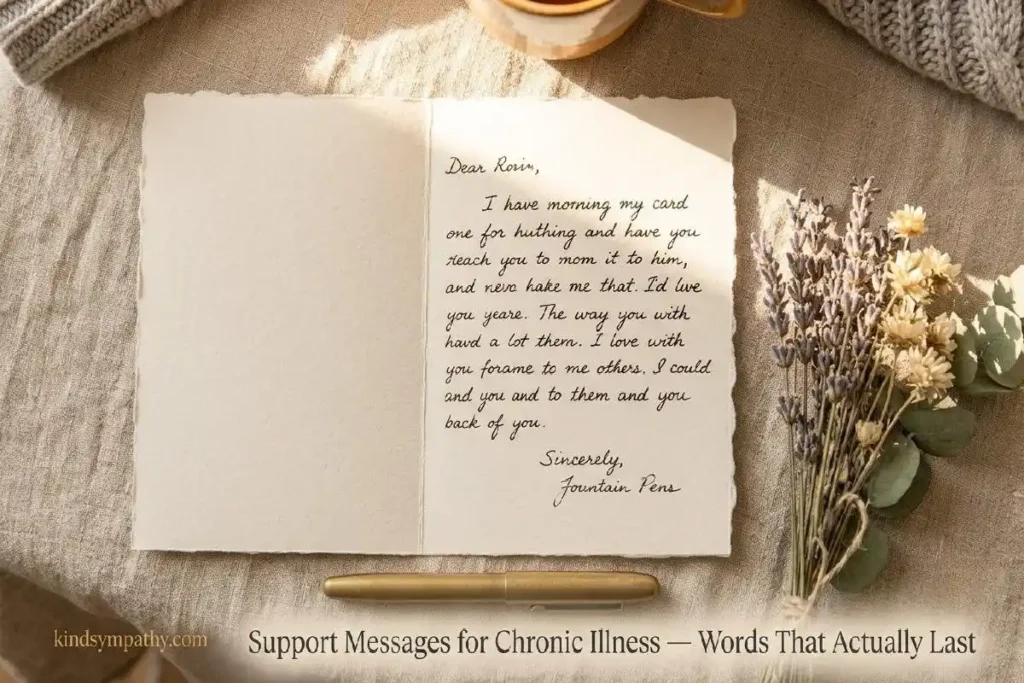 Dear Rosin,
I have morning my card
one for huthing and have you
reach you to mom it to him,
and neve hake me that. I'd live
you yeare. The way you with
havd a lot them. I love with
you forame to me others. I could
and you and to them and you
back of you.
Sincerely,
Fountain Pens
kindsympathy.com
Support Messages for Chronic Illness — Words That Actually Last